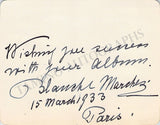 Wishing you success
with your album.
Blanche Marchesi
15 March 1933
Paris.